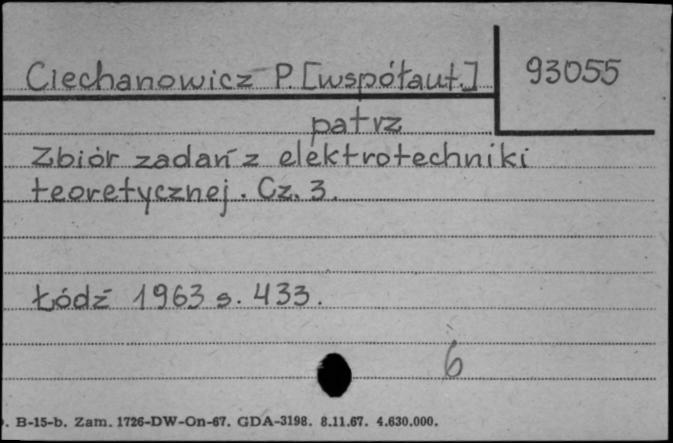 Ciechanowicz P. [współaut.] 93055
patrz
Zbiór zadań z elektrotechniki
teoretycznej. Cz. 3.
Łódź 1963 s. 433.
6
B-15-b. Zam. 1726-DW-On-67. GDA-3198. 8.11.67. 4.630.000.